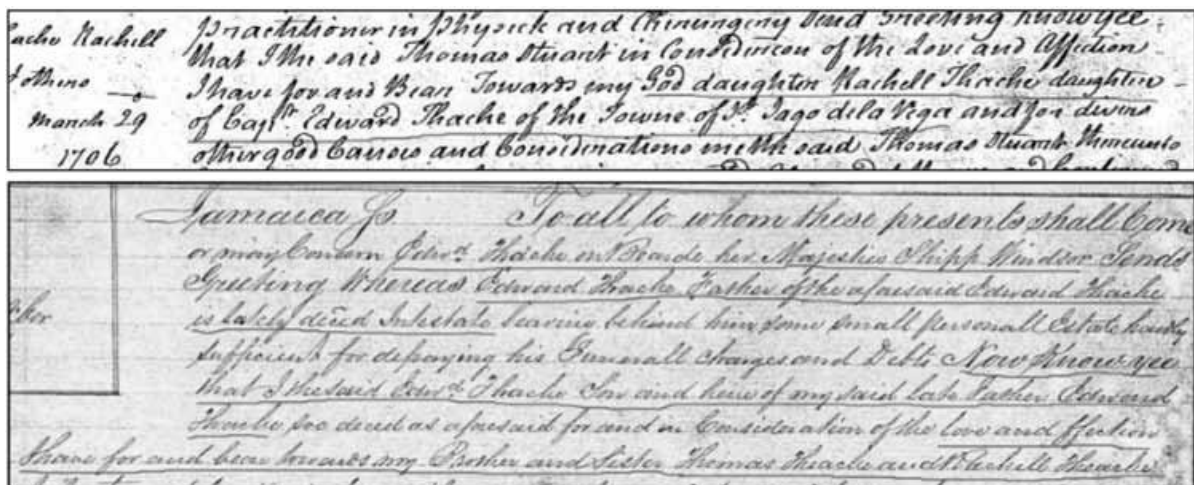 Practitioner in Physick and Chirurgery Send Greeting Know yee
that I the said Thomas Stuart in Consideracon of the Love and Affection
I have for and Bear Towards my God daughter Rachell Thache daughter
of Capt. Edward Thache of the Towne of St. Jago dela Vega and for divers
other good Causes and Considerations me the said Thomas Stuart thereunto
Rachell
others
March 29
1706
Jamaica Ss. To all to whom these presents shall Come
or may Concern Edwd. Thache on Boarde her Majesties Shipp Windsor Sends
Greeting Whereas Edward Thache Father of the aforesaid Edward Thache
is lately deced Intestate leaving behind him some small personall Estate hardly
sufficient for defraying his Funerall charges and Debts Now Know yee
that I the said Edwd. Thache Son and heire of my said late Father Edward
Thache soe deced as aforesaid for and in Consideration of the love and ffection
I have for and bear towards my Brother and Sister Thomas Theache and Rachell Theache